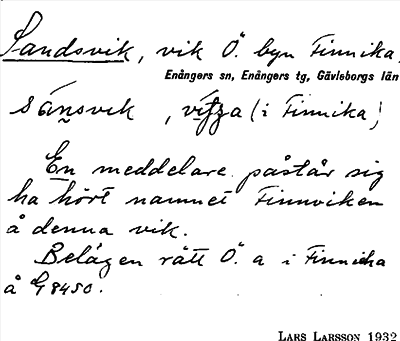 Sandsvik, vik Ö. byn Finnika,
Enångers sn, Enångers tg, Gävleborgs län
(i Finnika)
En meddelare påstår sig
ha hört namnet Finnviken
å denna vik.
Belägen rätt Ö. a i Finnicka
å G8450.
LARS LARSSON 1932